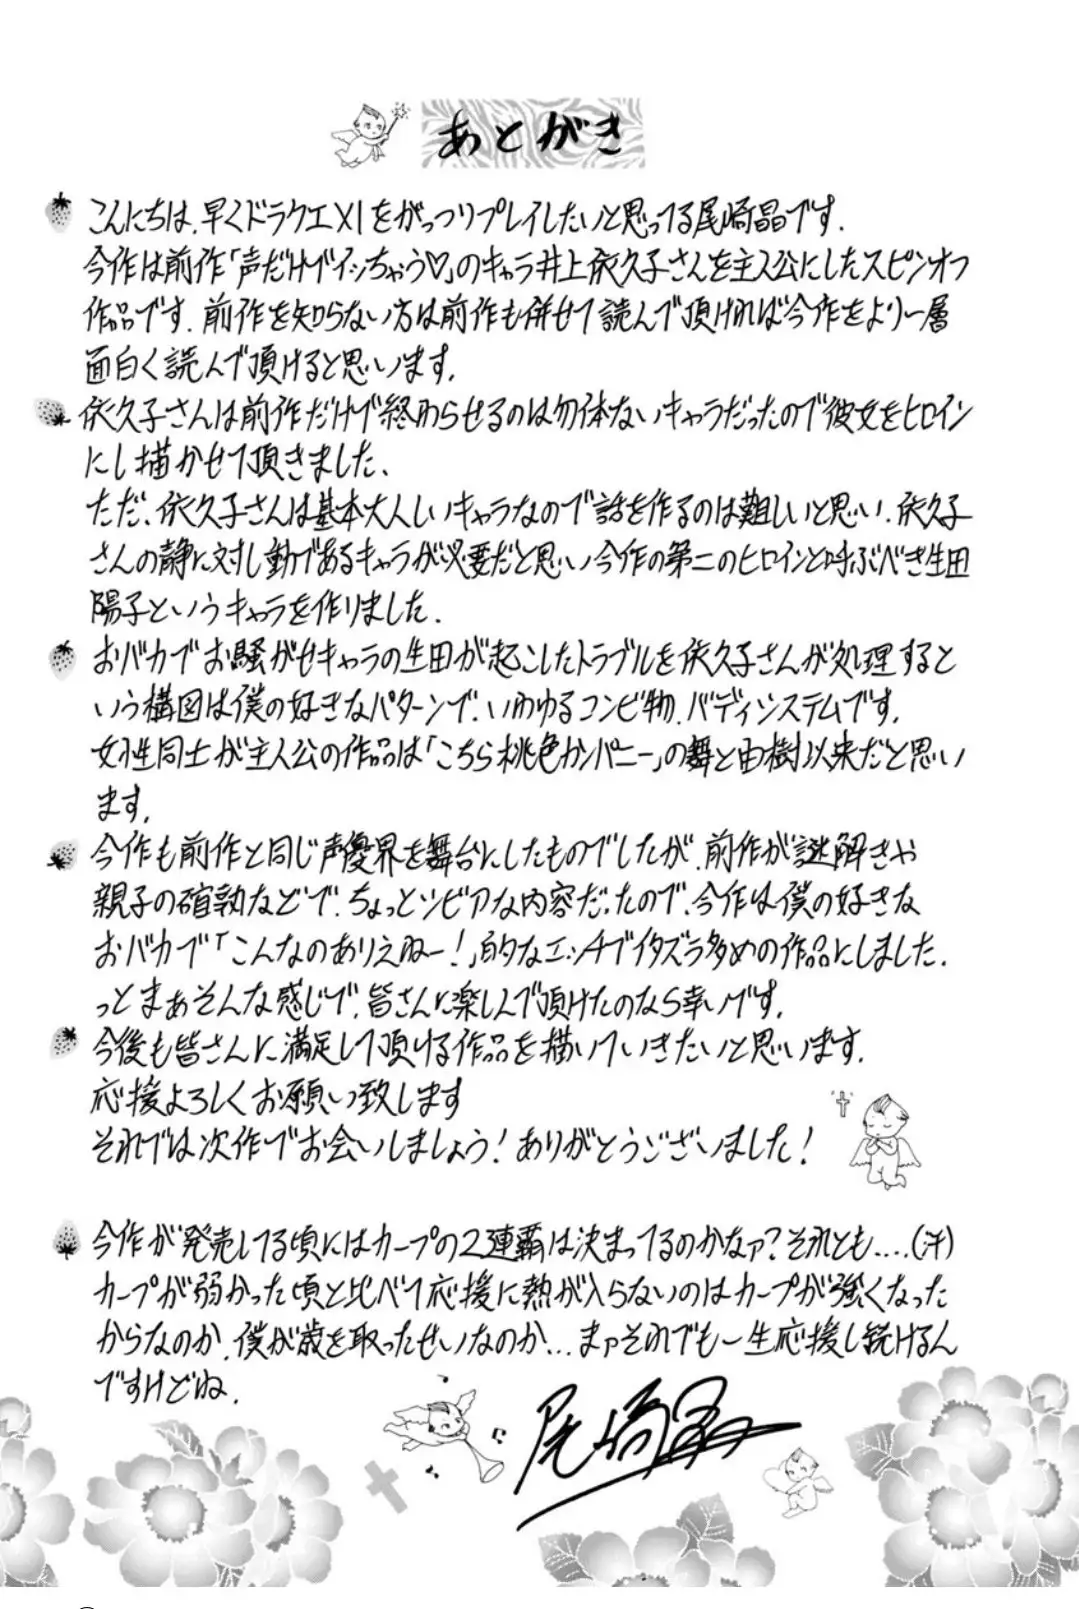 あとがき
こんにちは、早くドラクエXIをがっつりプレイしたいと思ってる尾崎晶です.
今作は前作「声だけでイッちゃう♡」のキャラ井上依久子さんを主人公にしたスピンオフ
作品です. 前作を知らない方は前作も併せて読んで頂ければ今作をより一層
面白く読んで頂けると思います.
依久子さんは前作だけで終わらせるのは勿体ないキャラだったので彼女をヒロイン
にし描かせて頂きました、
ただ、依久子さんは基本大人しいキャラなので話を作るのは難しいと思い、依久子
さんの静に対し動であるキャラが必要だと思い今作の第二のヒロインと呼ぶべき生田
陽子というキャラを作りました.
おバカでお騒がせキャラの生田が起こしたトラブルを依久子さんが処理すると
いう構図は僕の好きなパターンで、いわゆるコンビ物、バディシステムです.
女性同士が主人公の作品は「こちら桃色カンパニー」の舞と由樹以来だと思い
ます.
今作も前作と同じ声優界を舞台にしたものでしたが、前作が謎解きや
親子の確執などで、ちょっとシビアな内容だったので、今作は僕の好きな
おバカで「こんなのありえねー!」的なエッチでイタズラ多めの作品にしました.
っとまぁそんな感じで、皆さんに楽しんで頂けたのなら幸いです.
今後も皆さんに満足して頂ける作品を描いていきたいと思います.
応援よろしくお願い致します
それでは次作でお会いしましょう! ありがとうございました!
今作が発売してる頃にはカープの2連覇は決まってるのかなァ? それとも....(汗)
カープが弱かった頃と比べて応援に熱が入らないのはカープが強くなった
からなのか、僕が歳を取ったせいなのか... まァそれでも一生応援し続けるん
ですけどね.
尾崎晶